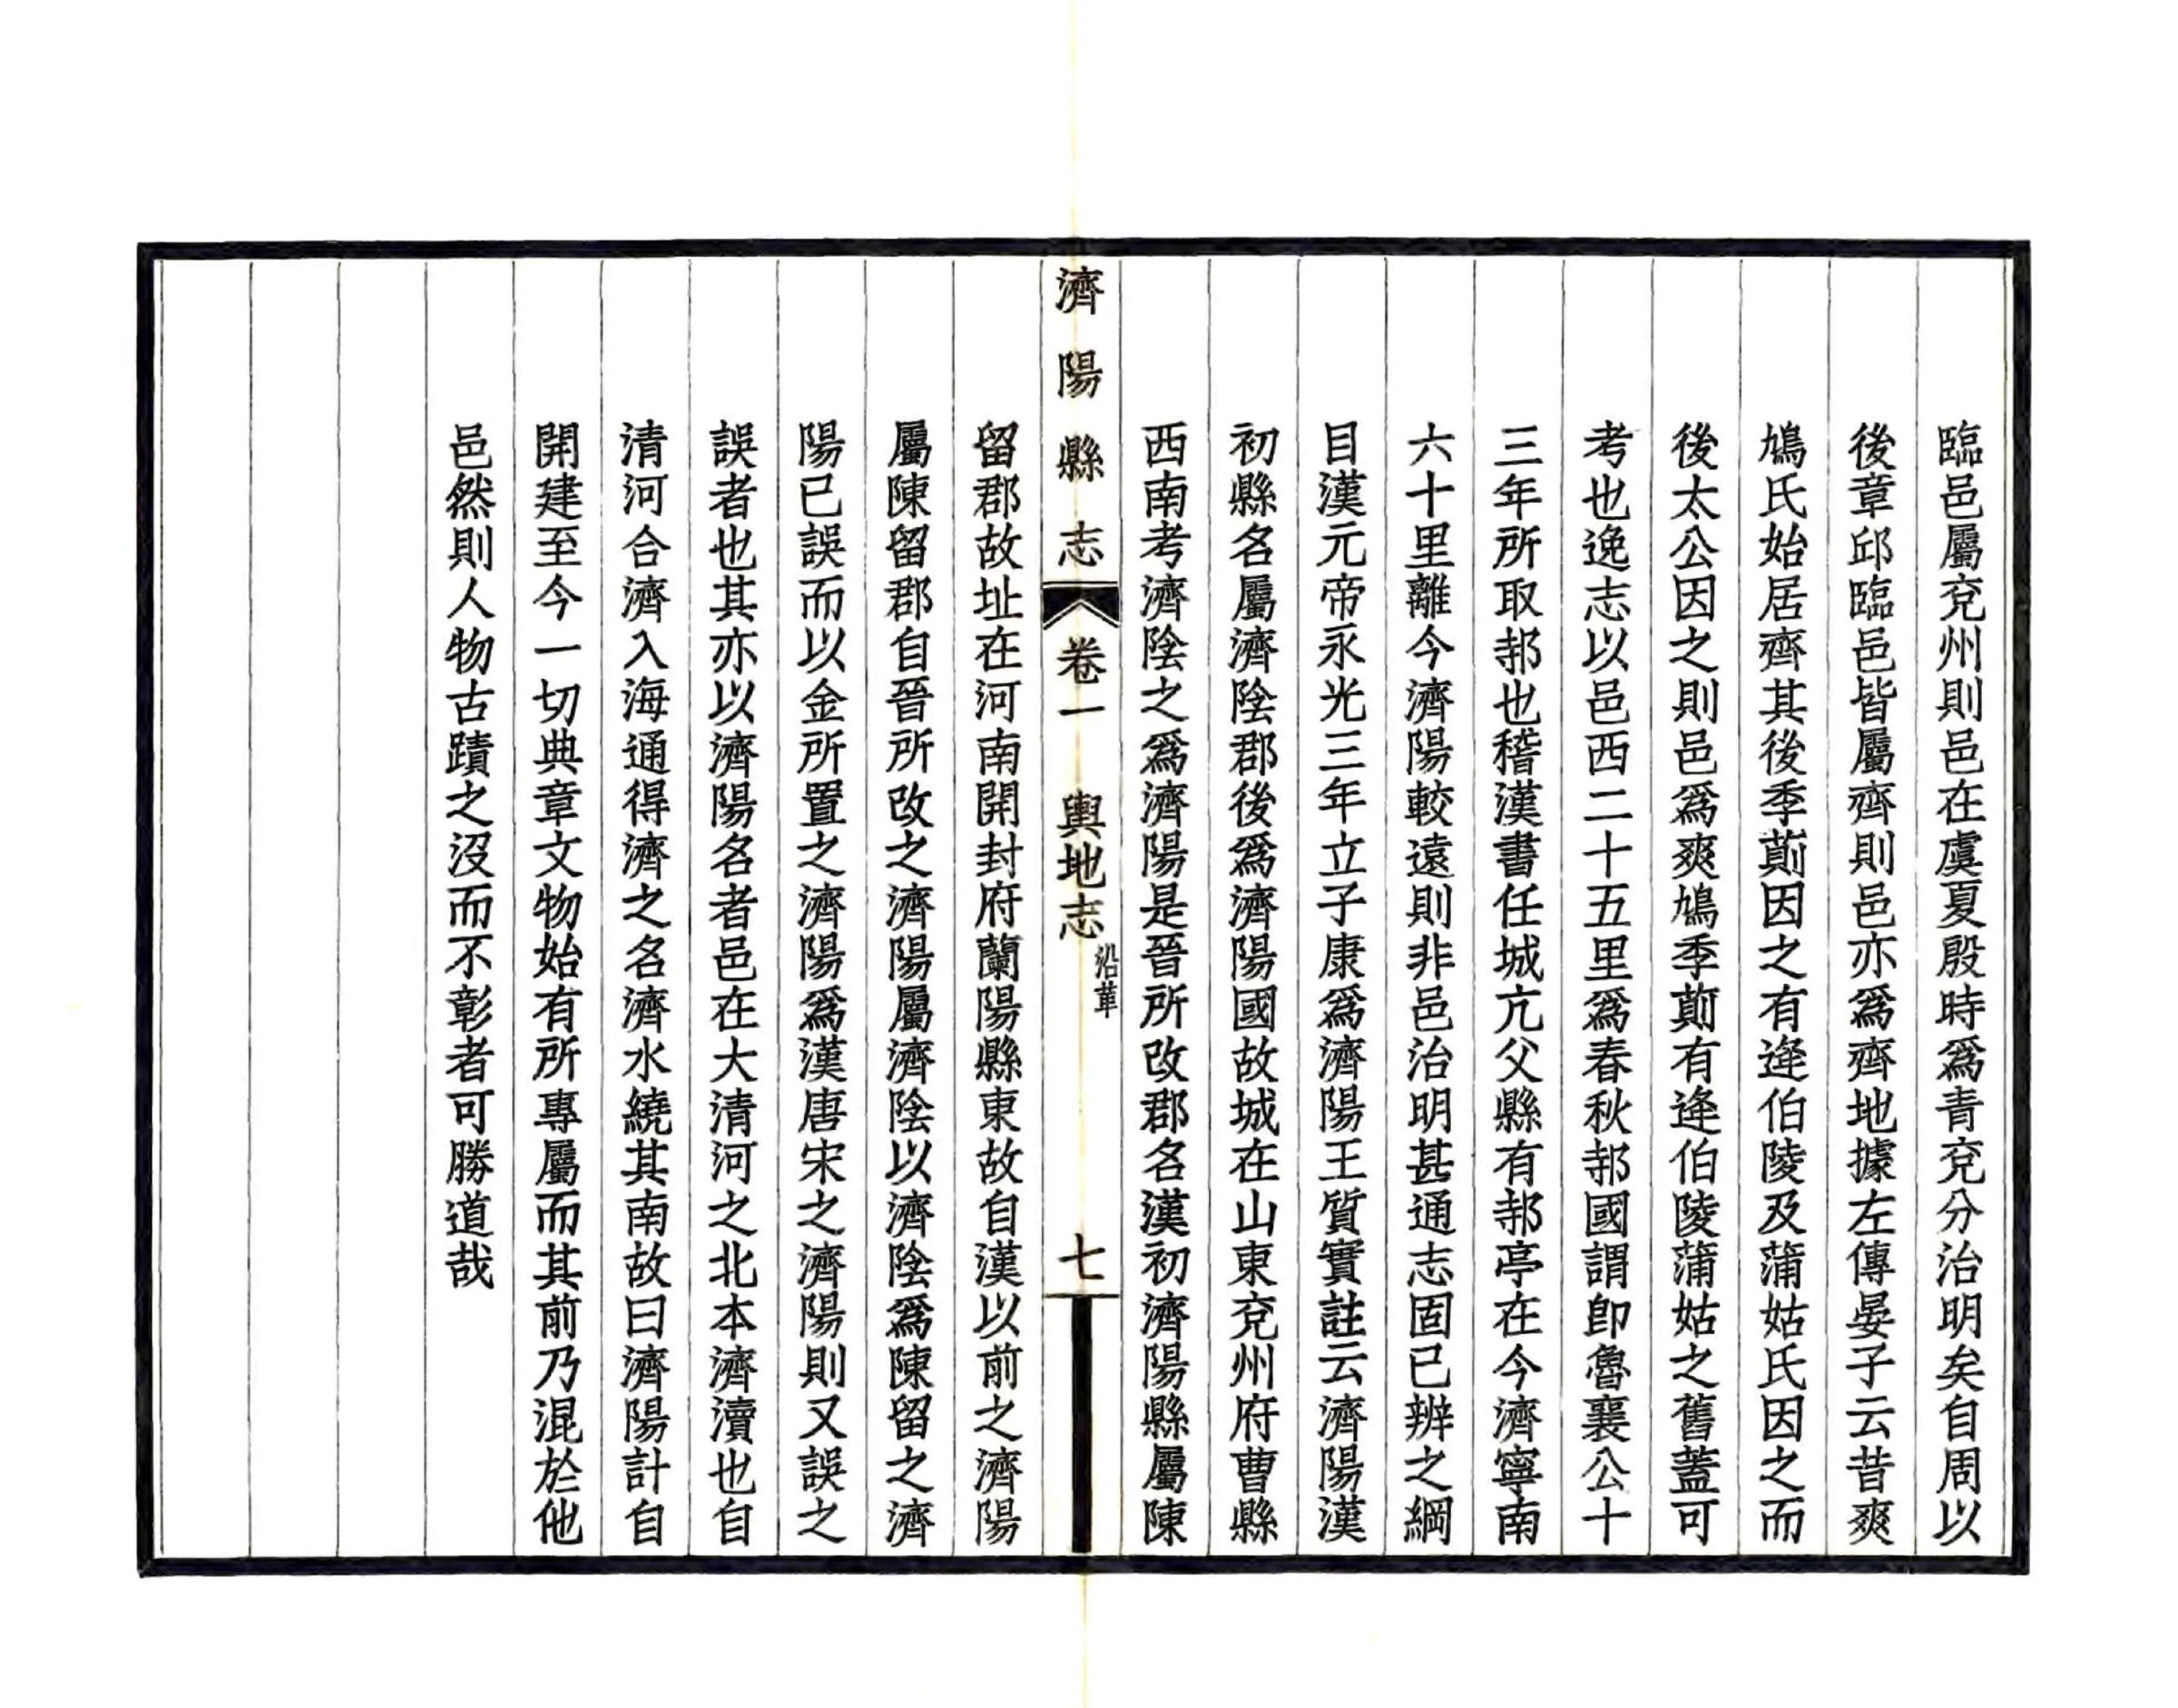 臨邑屬兗州則邑在虞夏殷時爲青兗分治明矣自周以
後章邱臨邑皆屬齊則邑亦爲齊地據左傳晏子云昔爽
鳩氏始居齊其後季萴因之有逄伯陵及蒲姑氏因之而
後太公因之則邑爲爽鳩季萴有逄伯陵蒲姑之舊蓋可
考也逸志以邑西二十五里爲春秋邿國謂卽魯襄公十
三年所取邿也稽漢書任城亢父縣有邿亭在今濟寧南
六十里離今濟陽較遠則非邑治明甚通志固已辨之綱
目漢元帝永光三年立子康爲濟陽王質實註云濟陽漢
初縣名屬濟陰郡後爲濟陽國故城在山東兗州府曹縣
西南考濟陰之爲濟陽是晉所改郡名漢初濟陽縣屬陳
濟陽縣志 卷一 輿地志 沿革 七
留郡故址在河南開封府蘭陽縣東故自漢以前之濟陽
屬陳留郡自晉所改之濟陽屬濟陰以濟陰爲陳留之濟
陽已誤而以金所置之濟陽爲漢唐宋之濟陽則又誤之
誤者也其亦以濟陽名者邑在大清河之北本濟瀆也自
清河合濟入海通得濟之名濟水繞其南故曰濟陽計自
開建至今一切典章文物始有所專屬而其前乃混於他
邑然則人物古蹟之沒而不彰者可勝道哉